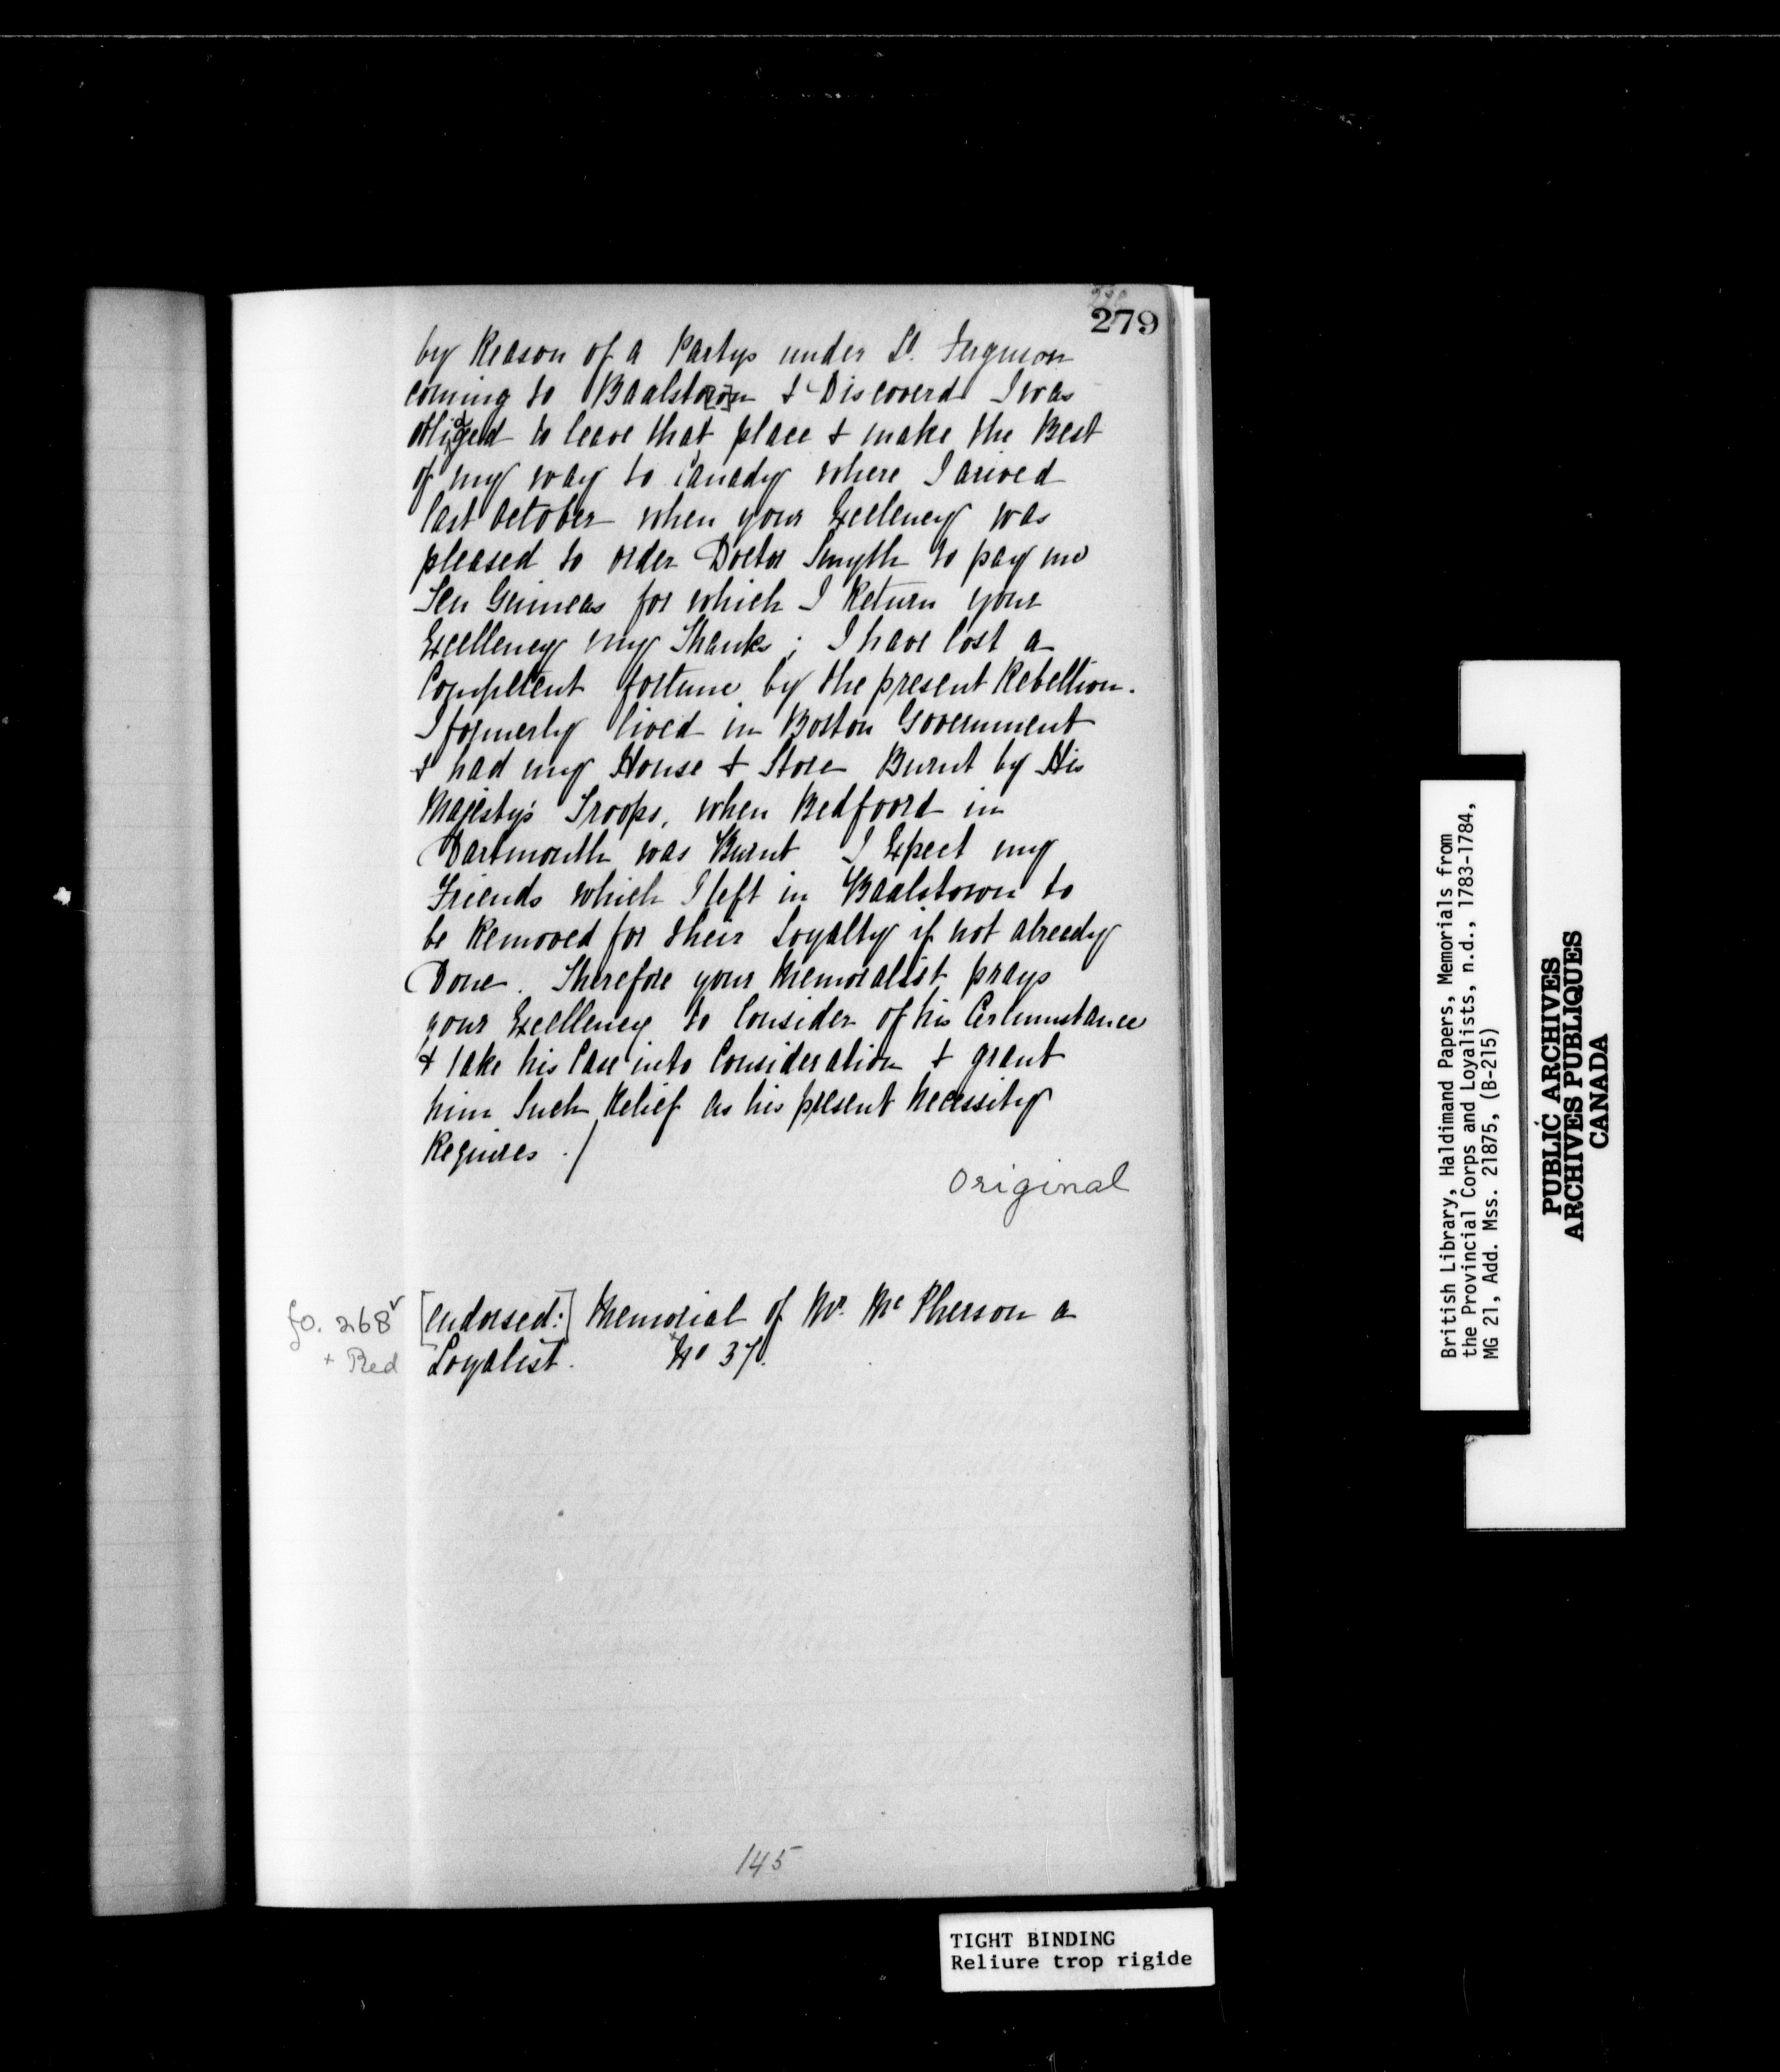 279
by Reason of a Partys under Lt. Ferguson
coming to Baalstown & Discoverd I was
obliged to leave that place & make the Best
of my way to Canady where I arived
last October when your Excelency was
pleased to order Doctor Smyth to pay me
Ten Guineas for which I Return your
Excellency my Thanks; I have lost a
Competent fortune by the present Rebellion.
I formerly lived in Boston Government
& had my House & Store Burnt by His
Majesty's Troops, when Bedfoord in
Dartmouth was Burnt I Expect my
Friends which I left in Baalstown to
be Removed for their Loyalty if not already
Done. Therefore your Memoralist prays
your Excellency to Consider of his Cerlumstance
& take his Case into Consideration & grant
him Such Relief as his present Necessity
Requires ./
Original
fo. 268v [endorsed:] Memorial of Mr. Mc Pherson a
+ Red Loyalist. No 37.
145
TIGHT BINDING
Reliure trop rigide
British Library, Haldimand Papers, Memorials from
the Provincial Corps and Loyalists, n.d., 1783-1784,
MG 21, Add. Mss. 21875, (B-215)
PUBLIC ARCHIVES
ARCHIVES PUBLIQUES
CANADA